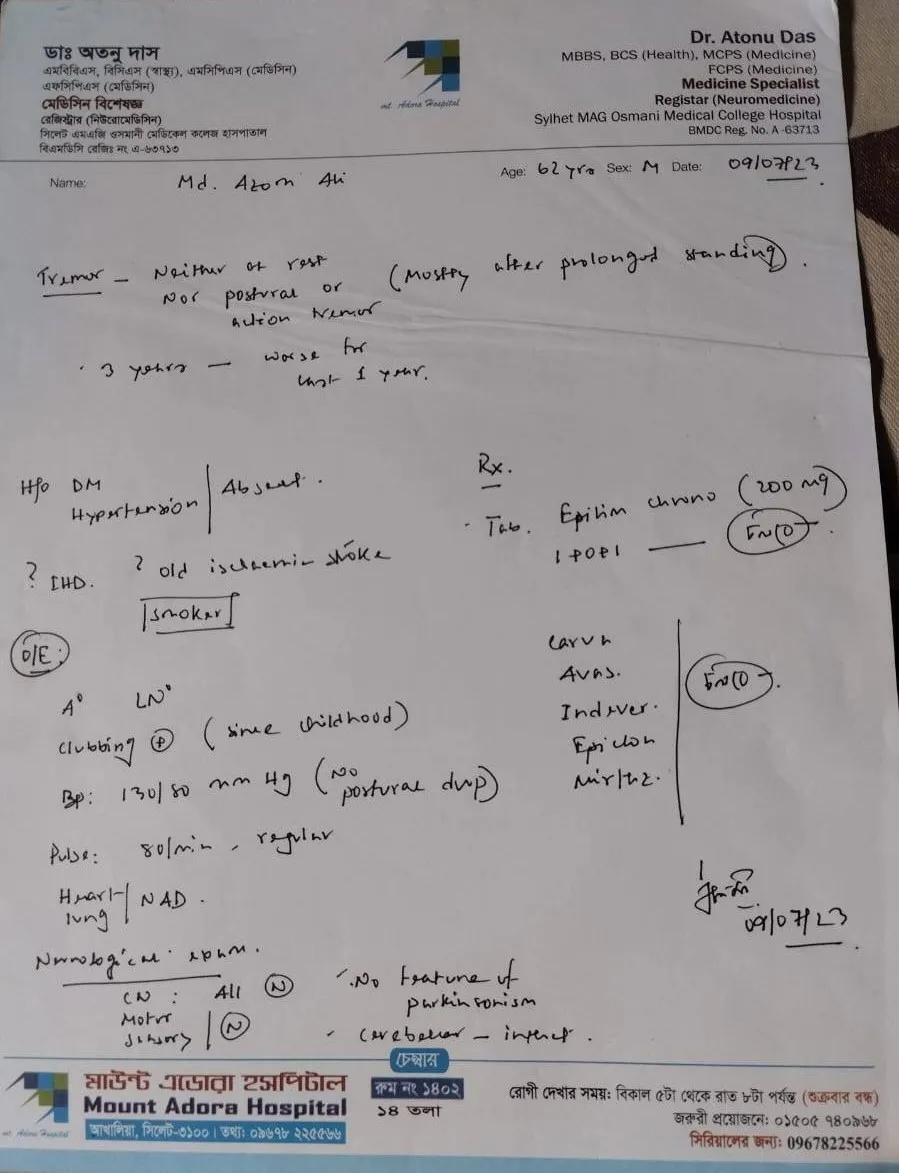 ডাঃ অতনু দাস
এমবিবিএস, বিসিএস (স্বাস্থ্য), এমসিপিএস (মেডিসিন)
এফসিপিএস (মেডিসিন)
মেডিসিন বিশেষজ্ঞ
রেজিস্ট্রার (নিউরোমেডিসিন)
সিলেট এমএজি ওসমানী মেডিকেল কলেজ হাসপাতাল
বিএমডিসি রেজিঃ নং এ-৬৩৭১৩
mt. Adora Hospital
Dr. Atonu Das
MBBS, BCS (Health), MCPS (Medicine)
FCPS (Medicine)
Medicine Specialist
Registar (Neuromedicine)
Sylhet MAG Osmani Medical College Hospital
BMDC Reg. No. A -63713
Name: Md. Azom Ali Age: 62 yrs Sex: M Date: 09/07/23
Tremor – Neither at rest (Mostly after prolonged standing).
Nor postural or
action tremor
· 3 years — worse for
last 1 year.
H/o DM
Hypertension | Absent.
? IHD. ? old ischaemic stroke
smoker
O/E:
A° LN°
Clubbing + (since childhood)
Bp: 130/80 mm Hg (No
postural drop)
Pulse: 80/min, regular
Heart
lung | NAD.
Neurological exam.
CN : All N
Motor
Sensory | N
No feature of
parkinsonism
Cerebellar – intact.
Rx.
Tab. Epilim chrono (200 mg)
1+0+1 — চলবে
Carva
Avas.
Indever.
Epiclon
চলবে
09/07/23
চেম্বার
mt. Adora Hospital
মাউন্ট এডোরা হসপিটাল
Mount Adora Hospital
আখালিয়া, সিলেট-৩১০০। তথ্য: ০৯৬৭৮ ২২৫৫৬৬
রুম নং ১৪০২
১৪ তলা
রোগী দেখার সময়: বিকাল ৫টা থেকে রাত ৮টা পর্যন্ত (শুক্রবার বন্ধ)
জরুরী প্রয়োজনে: ০১৫০৫ ৭৪০৯৬৮
সিরিয়ালের জন্য: 09678225566